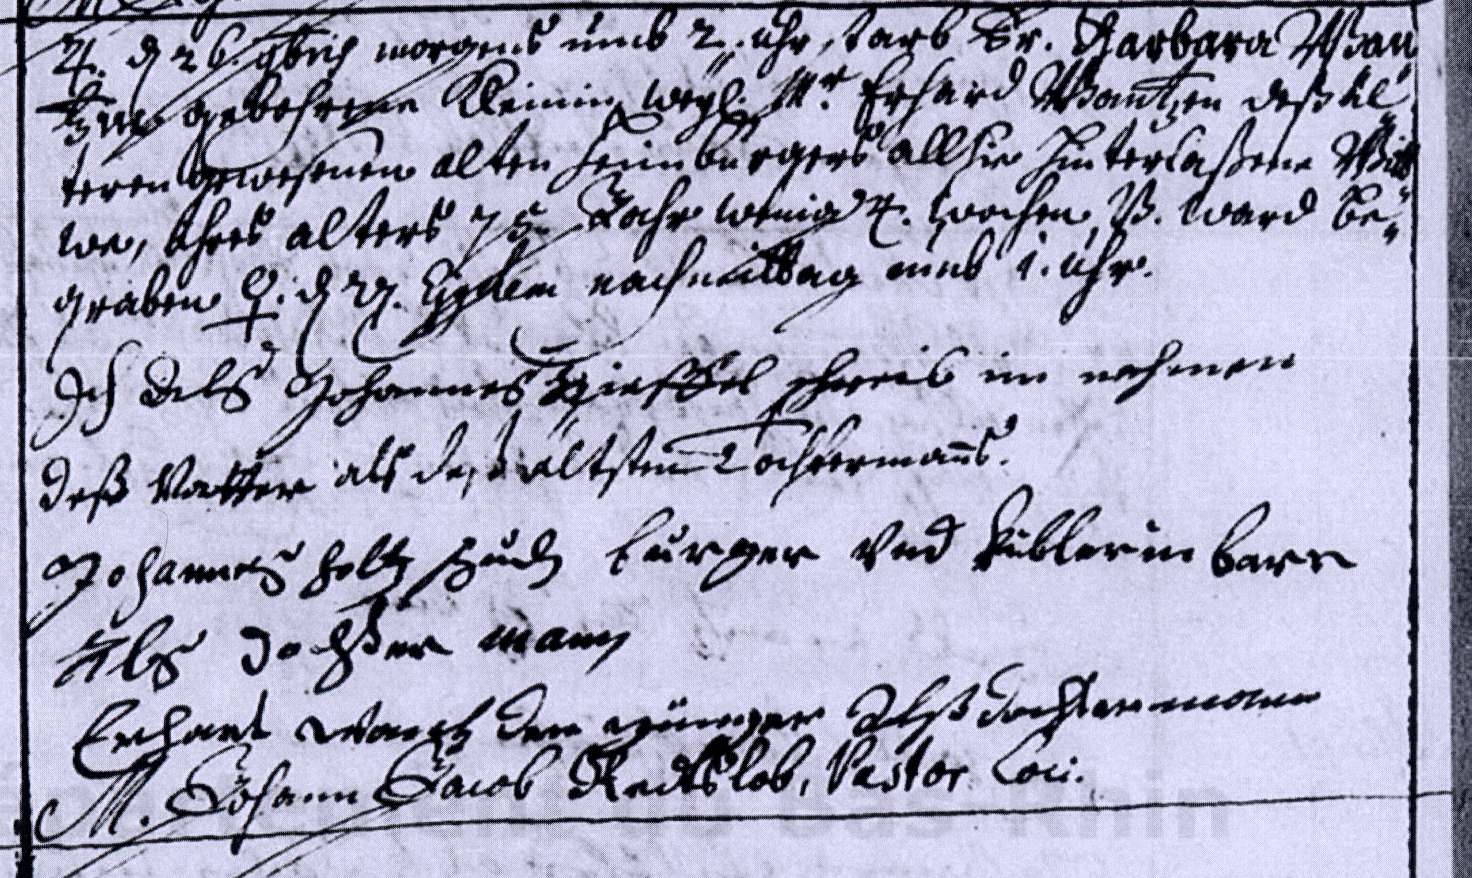 ♃. d 26. 9brisch morgens umb 2. uhr, starb Fr. Barbara Wan
tzin gebohrene Kleinin, weyl. Mr. Erhard Wantzen deß äl
teren gewesenen alten Heimburgers allhie hinterlaßene Wit
we, Ihres alters 75. Jahr wenig 4. wochen, V. ward be-
graben ♀. d 27. Ejusdem nachmittag umb 1. Uhr.
Ich Johannes schreib im nahmen
deß Vatter als deß ältsten Tochtermañs.
Johannes burger und kübler in barr
Alß dochter mann
Erhart wantz der jünger Alß dochtermann
M. Johann Jacob Redslob, Pastor loci.